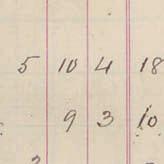 5 10 4 18
9 3 10